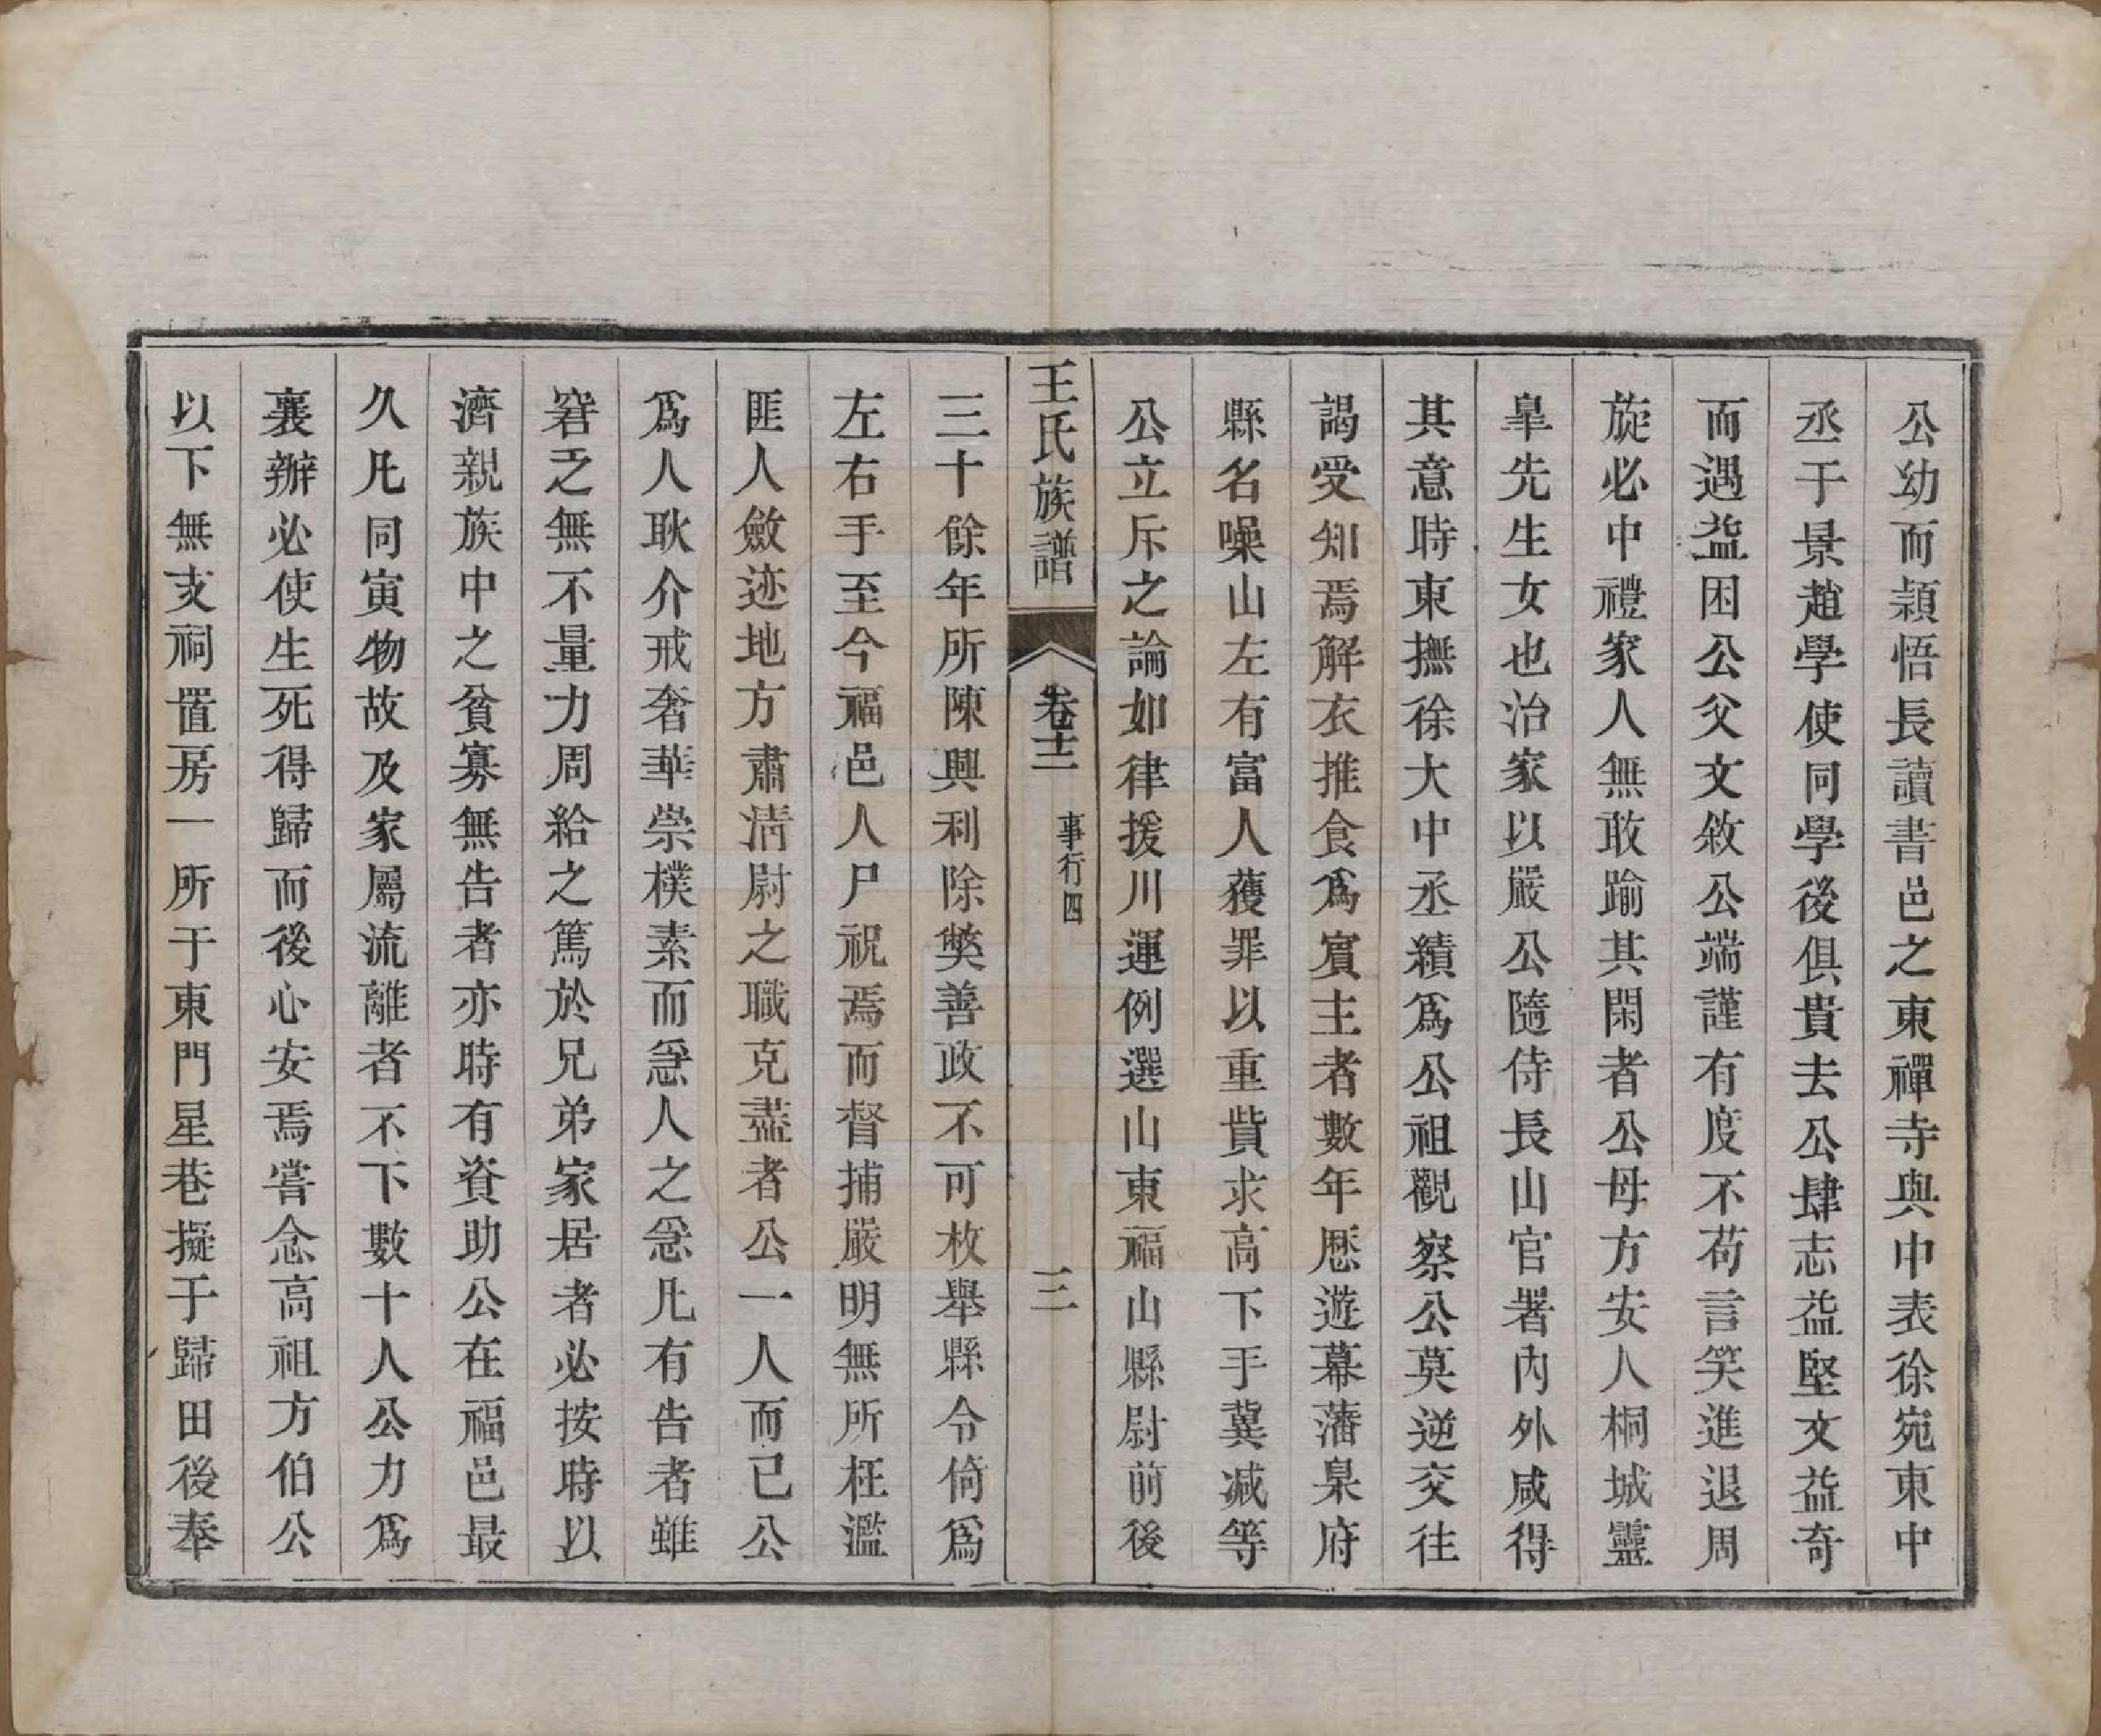 公幼而穎悟長讀書邑之東禪寺與中表徐宛東中
丞于景趙學使同學後俱貴去公肆志益堅文益奇
而遇益困公父文敘公端謹有度不苟言笑進退周
旋必中禮家人無敢踰其閑者公母方安人桐城靈
臯先生女也治家以嚴公隨侍長山官署內外咸得
其意時東撫徐大中丞績爲公祖觀察公莫逆交往
謁受知焉解衣推食爲賓主者數年歷遊幕藩臬府
縣名噪山左有富人獲罪以重貲求高下手冀減等
公立斥之論如律援川運例選山東福山縣尉前後
王氏族譜
卷十二
事行四
三
三十餘年所陳興利除獘善政不可枚舉縣令倚爲
左右手至今福邑人尸祝焉而督捕嚴明無所枉濫
匪人斂迹地方肅淸尉之職克盡者公一人而已公
爲人耿介戒奢華崇樸素而急人之急凡有告者雖
窘乏無不量力周給之篤於兄弟家居者必按時以
濟親族中之貧寡無告者亦時有資助公在福邑最
久凡同寅物故及家屬流離者不下數十人公力爲
襄辦必使生死得歸而後心安焉嘗念高祖方伯公
以下無支祠置房一所于東門星巷擬于歸田後奉